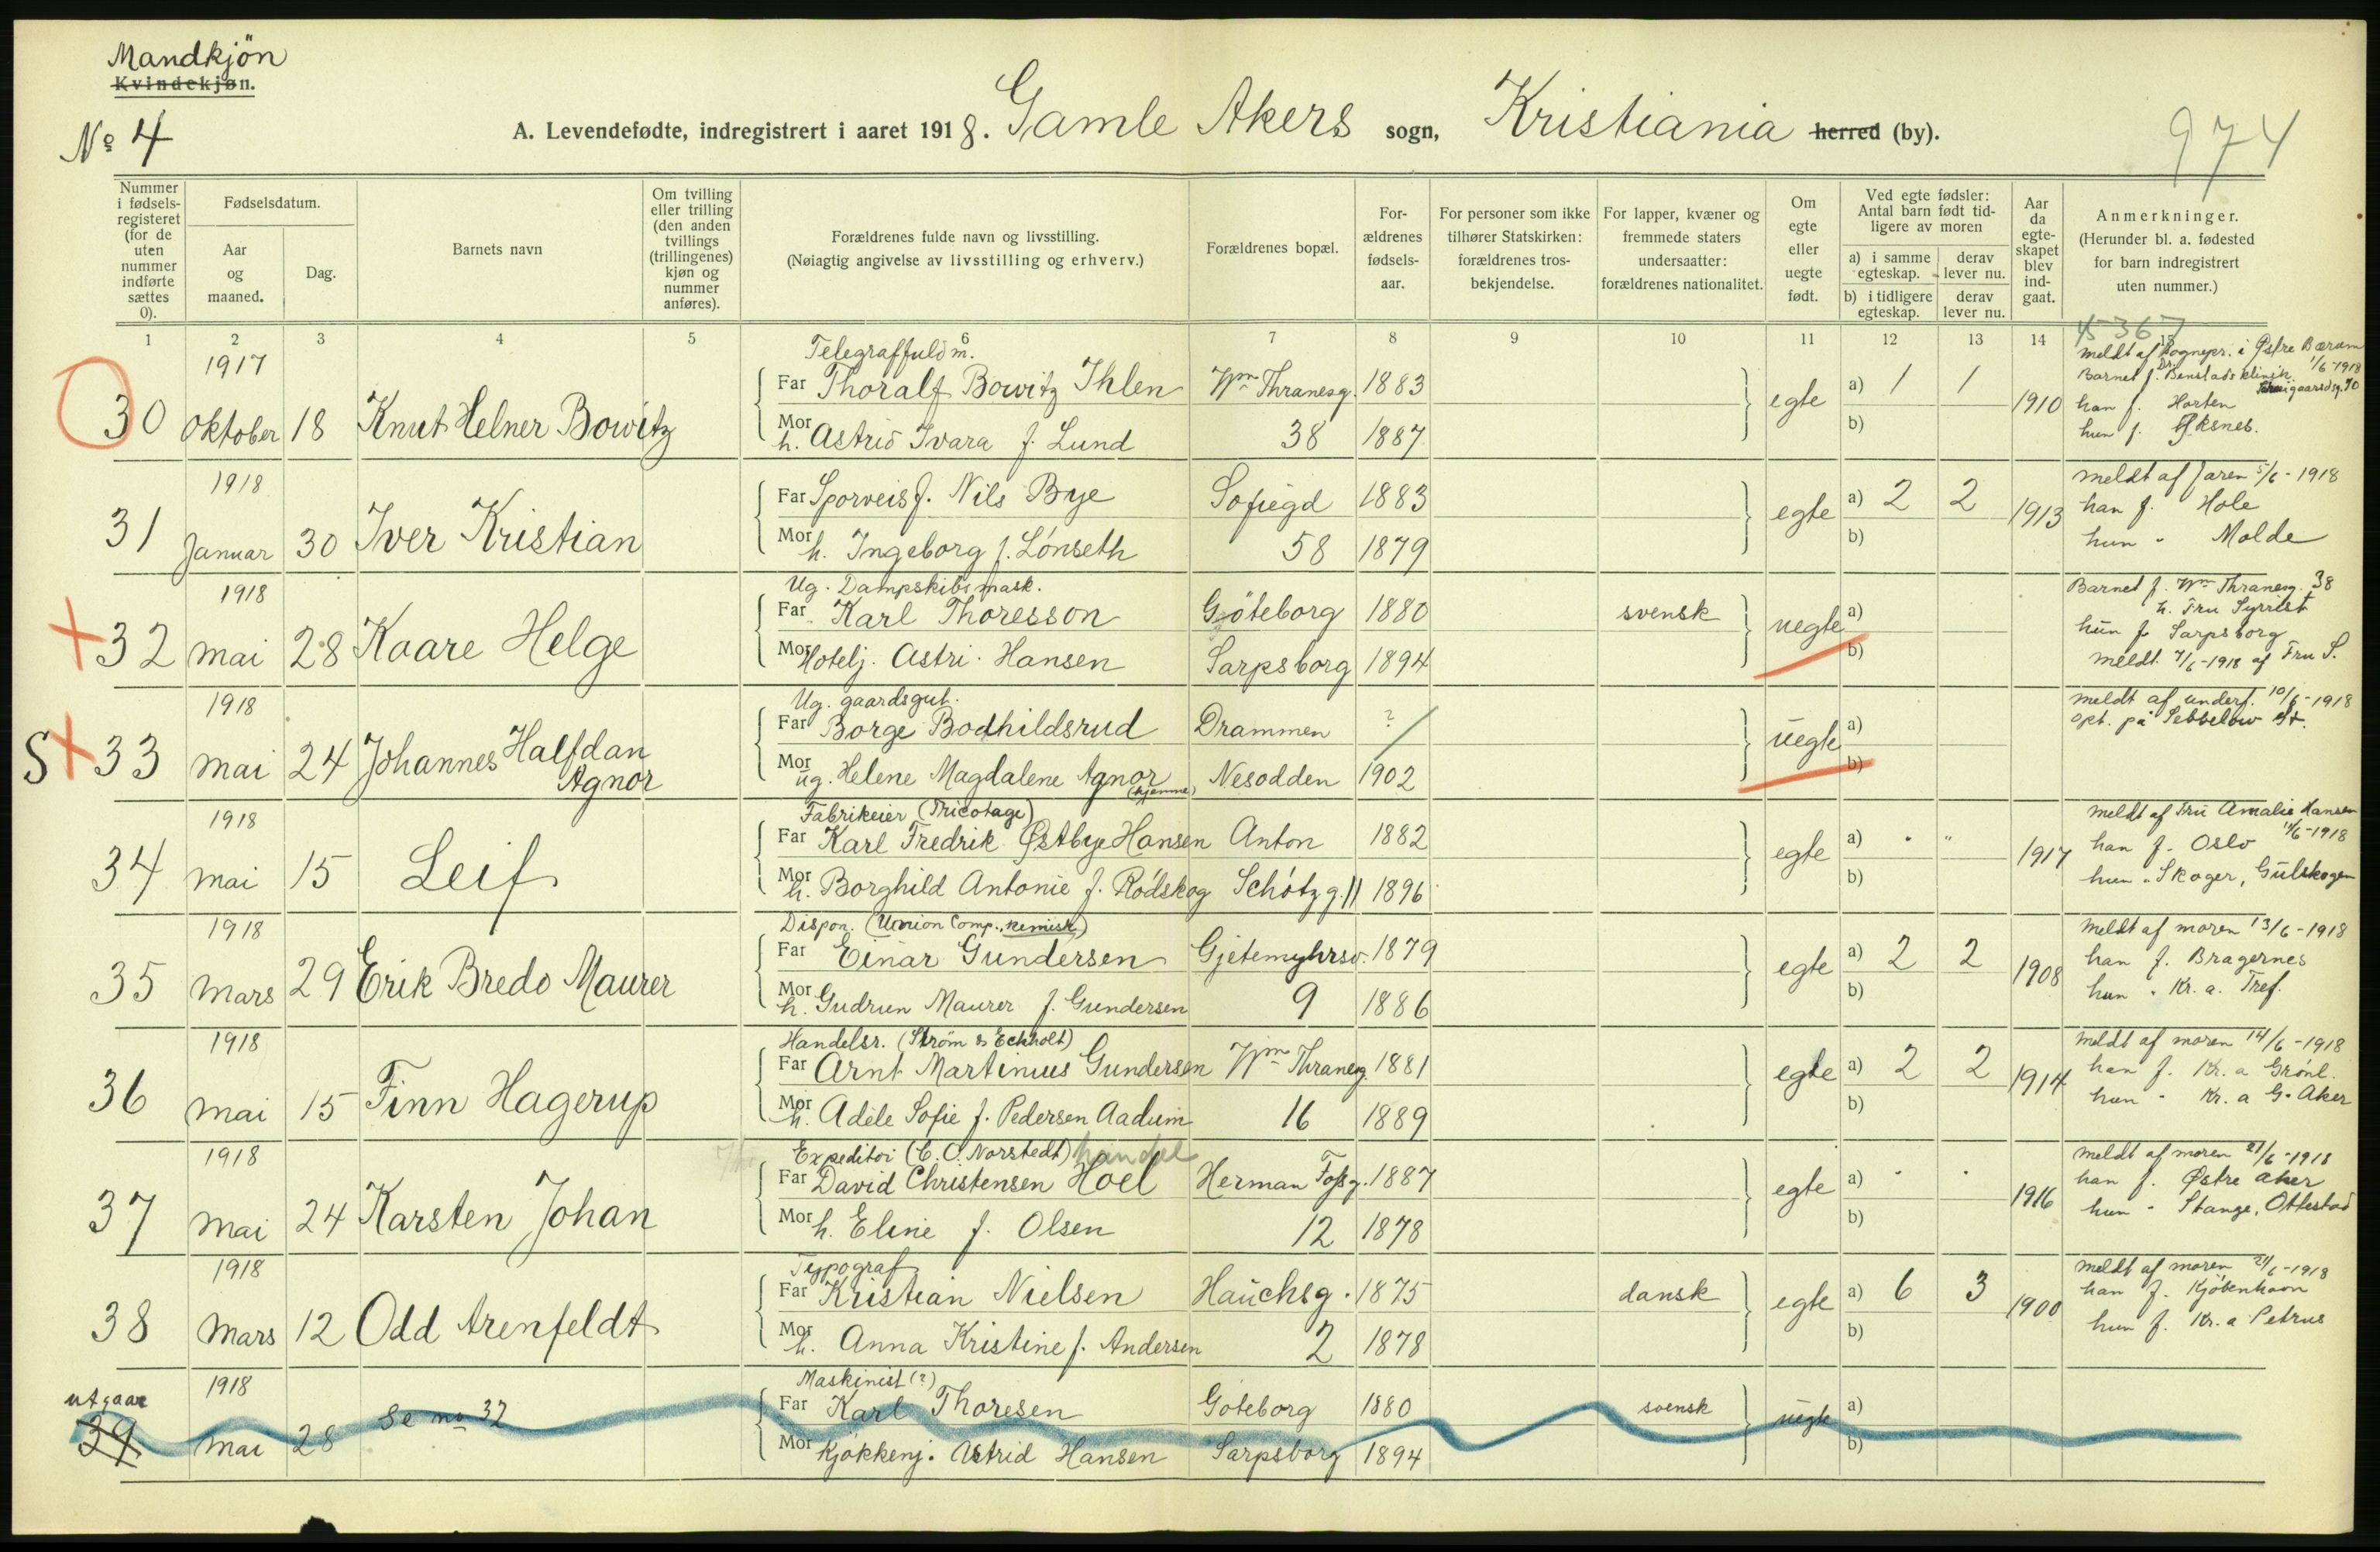 Mandkjön
Kvindekjøn.
No 4
A. Levendefødte, indregistrert i aaret 1918. Gamle Akers sogn, Kristiania herred (by).
974
Nummer i fødsels-registeret (for de uten nummer indførte sættes 0).
Fødselsdatum.
Aar og maaned.
Dag.
Barnets navn
Om tvilling eller trilling (den anden tvillings (trillingenes) kjøn og nummer anføres).
Forældrenes fulde navn og livsstilling.
(Nøiagtig angivelse av livsstilling og erhverv.)
Forældrenes bopæl.
For-ældrenes fødsels-aar.
For personer som ikke tilhører Statskirken: forældrenes tros-bekjendelse.
For lapper, kvæner og fremmede staters undersaatter: forældrenes nationalitet.
Om egte eller uegte født.
Ved egte fødsler: Antal barn født tid-ligere av moren
a) i samme egteskap. derav lever nu.
b) i tidligere egteskap. derav lever nu.
Aar da egte-skapet blev ind-gaat.
Anmerkninger.
(Herunder bl. a. fødested for barn indregistrert uten nummer.)
1 2 3 4 5 6 7 8 9 10 11 12 13 14 15
45367
1917 Telegraffuldm. meldt af Sognepr. i Østre Bærum 1/6-1918
Far Thoralf Bowitz Ihlen Wm Thranesg. 1883 a) 1 1 Barnet f. Dr. Benstads klinik
30 Oktober 18 Knut Helner Bowitz egte 1910 han f. Horten
Mor h. Astrid Ivara f. Lund 38 1887 b) hun f.
1918 meldt af faren 5/6-1918
Far Sporveisf. Nils Bye Sofiegd 1883 a) 2 2 han f. Hole
31 Januar 30 Iver Kristian egte 1913
Mor h. Ingeborg f. Lönseth 58 1879 b) hun " Molde
1918 Ug. Dampskibsmask. Barnet f. Wm Thranesg. 38
Far Karl Thoresson Göteborg 1880 svensk a) h. Fru Syrrist
32 mai 28 Kaare Helge uegte hun f. Sarpsborg
Mor Hotelj. Astri Hansen Sarpsborg 1894 b) meldt 7/6-1918 af Fru S.
1918 Ug. gaardsgut. meldt af underf. 10/6-1918
Far Borge Bodhildsrud Drammen ? a) opt. på
S 33 mai 24 Johannes Halfdan Agnor uegte
Mor ug. Helene Magdalene Agnor (hjemme) Nesodden 1902 b)
1918 Fabrikeier (Tricotage) meldt af Fru Amalie Hansen
Far Karl Fredrik Østbye Hansen Anton 1882 a) " " han f. Oslo 11/6-1918
34 mai 15 Leif egte 1917
Mor h. Borghild Antonie f. Rödskog Schötz g. 11 1896 b) hun " Skoger, Gulskogen
1918 Dispon. (Union Comp., kemisk) meldt af moren 13/6-1918
Far Einar Gundersen Gjetemyhrsv. 1879 a) 2 2 han f. Bragernes
35 mars 29 Erik Bredo Maurer egte 1908
Mor h. Gudrun Maurer f. Gundersen 9 1886 b) hun " Kr. a. Tref.
1918 Handelsr. (Strøm & Eckholt) meldt af moren 14/6-1918
Far Arnt Martinius Gundersen Wm Thranesg. 1881 a) 2 2 han f. Kr. a Grönl.
36 mai 15 Finn Hagerup egte 1914
Mor h. Adele Sofie f. Pedersen Aadum 16 1889 b) hun " Kr. a G. Aker
1918 Expeditör (C. O. Norstedt) handel meldt af moren 21/6-1918
Far David Christensen Hoel Herman Fossg. 1887 a) " " han f. Østre Aker
37 mai 24 Karsten Johan egte 1916
Mor h. Eline f. Olsen 12 1878 b) hun " Stange, Ottestad
1918 Typograf meldt af moren 21/6-1918
Far Kristian Nielsen Hauchsg. 1875 dansk a) 6 3 han f. Kjøbenhavn
38 mars 12 Odd Arenfeldt egte 1900
Mor h. Anna Kristine f. Andersen 2 1878 b) hun f. Kr. a Petrus
utgaar 1918 Maskinist (?)
Far Karl Thoresen Göteborg 1880 svensk a)
39 mai 28 Se no 32 uegte
Mor Kjökkenj. Astrid Hansen Sarpsborg 1894 b)